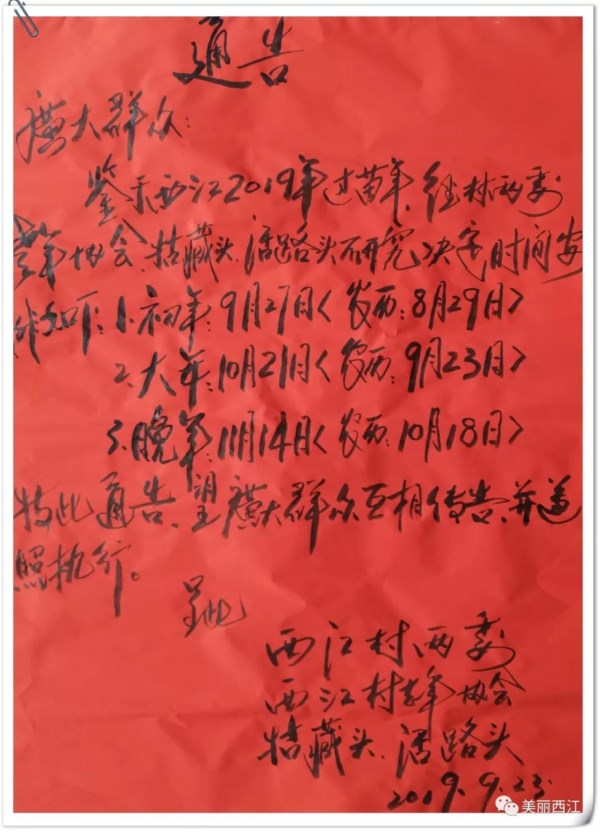 通告
廣大群众:
鉴于西江2019年过苗年,经村两委
老年协会、牯藏头、活路头研究决定时间安
排如下:1.初年:9月27日<农历:8月29日>
2.大年:10月21日<农历:9月23日>
3.晚年:11月14日<农历:10月18日>
特此通告,望廣大群众互相传告,并遵
照执行。
呈此
西江村两委
西江村老年协会
牯藏头、活路头
2019.9.23.
美丽西江